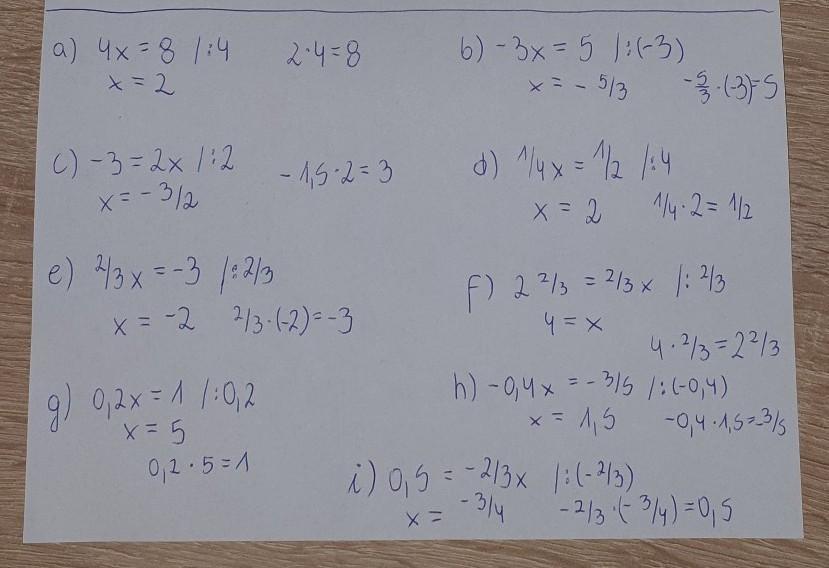 a) 4x = 8 /:4 2·4=8
x = 2
b) -3x = 5 /:(-3)
x = - 5/3 -5/3·(-3)=5
c) -3 = 2x /:2
x = -3/2 -1,5·2=3
d) 1/4x = 1/2 /:4
x = 2 1/4·2= 1/2
e) 2/3x = -3 /:2/3
x = -2 2/3·(-2)=-3
f) 2 2/3 = 2/3x /: 2/3
4 = x
4·2/3=2 2/3
g) 0,2x = 1 /:0,2
x = 5
0,2·5=1
h) -0,4x = -3/5 /:(-0,4)
x = 1,5 -0,4·1,5=-3/5
i) 0,5 = -2/3x /:(-2/3)
x = -3/4 -2/3·(-3/4)=0,5